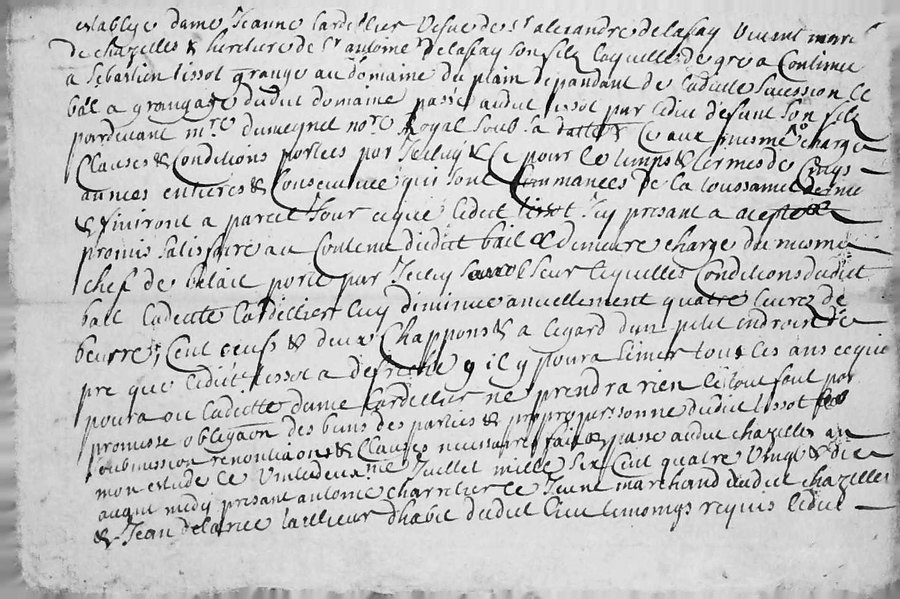 establye dame Jeanne Cardellier vefve de Sr alexandre delafay vivant marct
de chazelles & heritiere de Sr antoine delafay son filz laquelle de gre a Continué
a Sebastien tissot granger au domaine du plain dépandant de ladicte sucession le
bail a grangage dudict domaine passé audict tissot par ledict défunt son filz
pardevant mre dumeynet nore Royal soub sa datte & Ce aux mesmes charges
Clauses & Conditions portées par Jceluy & Ce pour le temps & termes de Cinqs
années entieres & Consecutives qui sont Commancées de la toussainct dernie
& finiront a pareil Jour ceque ledict tissot Jcy présant a acepté &
promis satisfaire au Contenu dudict bail & demeure chargé du mesme
chef de bétail porté par Jceluy sur lesquelles Conditions dudict
bail ladicte Cardellier luy diminue anuellement quatre livres de
beurre, Cent oeufs & deux Chappons & a legard dun petit endroit de
pre que ledict tissot a défriché quil y poura semer tous les ans ceque
poura ou ladicte dame Cardellier ne prendra rien le tout soubt par
promesse obligaon des biens des parties & propre personne dudict tissot
submission renontiaons & Clauses necessaires fait & passé audict chazelles en
mon estude le Vintedeuxme Juillet mille six Cent quatre Vingt & dix
avant midy présant antoine charretier le Jeune marchand dudict chazelles
& Jean delarue tailleur dhabit dudict lieu temoings requis ledict